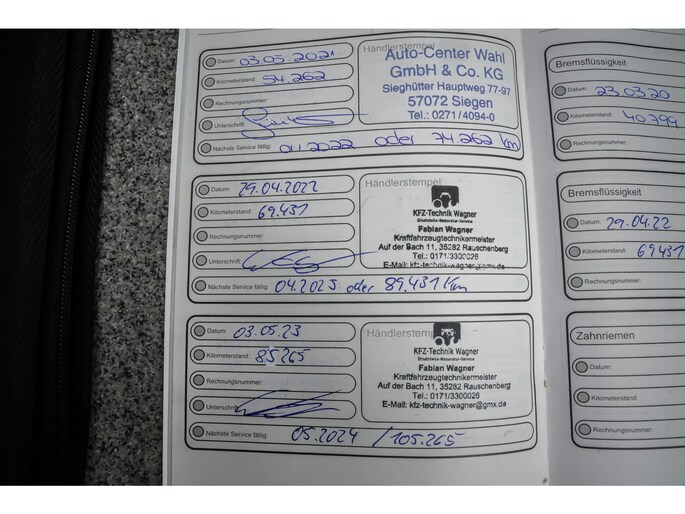 Datum: 03.05.2021
Händlerstempel
Kilometerstand: 54.262
Rechnungsnummer:
Unterschrift:
Auto-Center Wahl
GmbH & Co. KG
Sieghütter Hauptweg 77-97
57072 Siegen
Tel.: 0271/4094-0
Nächste Service fällig: 04.2022 oder 74.262 km
Datum: 29.04.2022
Händlerstempel
Kilometerstand: 69.431
Rechnungsnummer:
Unterschrift:
KFZ-Technik Wagner
Ersatzteile-Reparatur-Service
Fabian Wagner
Kraftfahrzeugtechnikermeister
Auf der Bach 11, 35282 Rauschenberg
Tel.: 0171/3300026
E-Mail: kfz-technik-wagner@gmx.de
Nächste Service fällig: 04.2023 oder 89.431 km
Datum: 03.05.23
Händlerstempel
Kilometerstand: 85265
Rechnungsnummer:
Unterschrift:
KFZ-Technik Wagner
Ersatzteile-Reparatur-Service
Fabian Wagner
Kraftfahrzeugtechnikermeister
Auf der Bach 11, 35282 Rauschenberg
Tel.: 0171/3300026
E-Mail: kfz-technik-wagner@gmx.de
Nächste Service fällig: 05.2024 / 105.265
Bremsflüssigkeit
Datum: 23.03.20
Kilometerstand: 40799
Rechnungsnummer:
Bremsflüssigkeit
Datum: 29.04.22
Kilometerstand: 69431
Rechnungsnummer:
Zahnriemen
Datum:
Kilometerstand:
Rechnungsnummer: